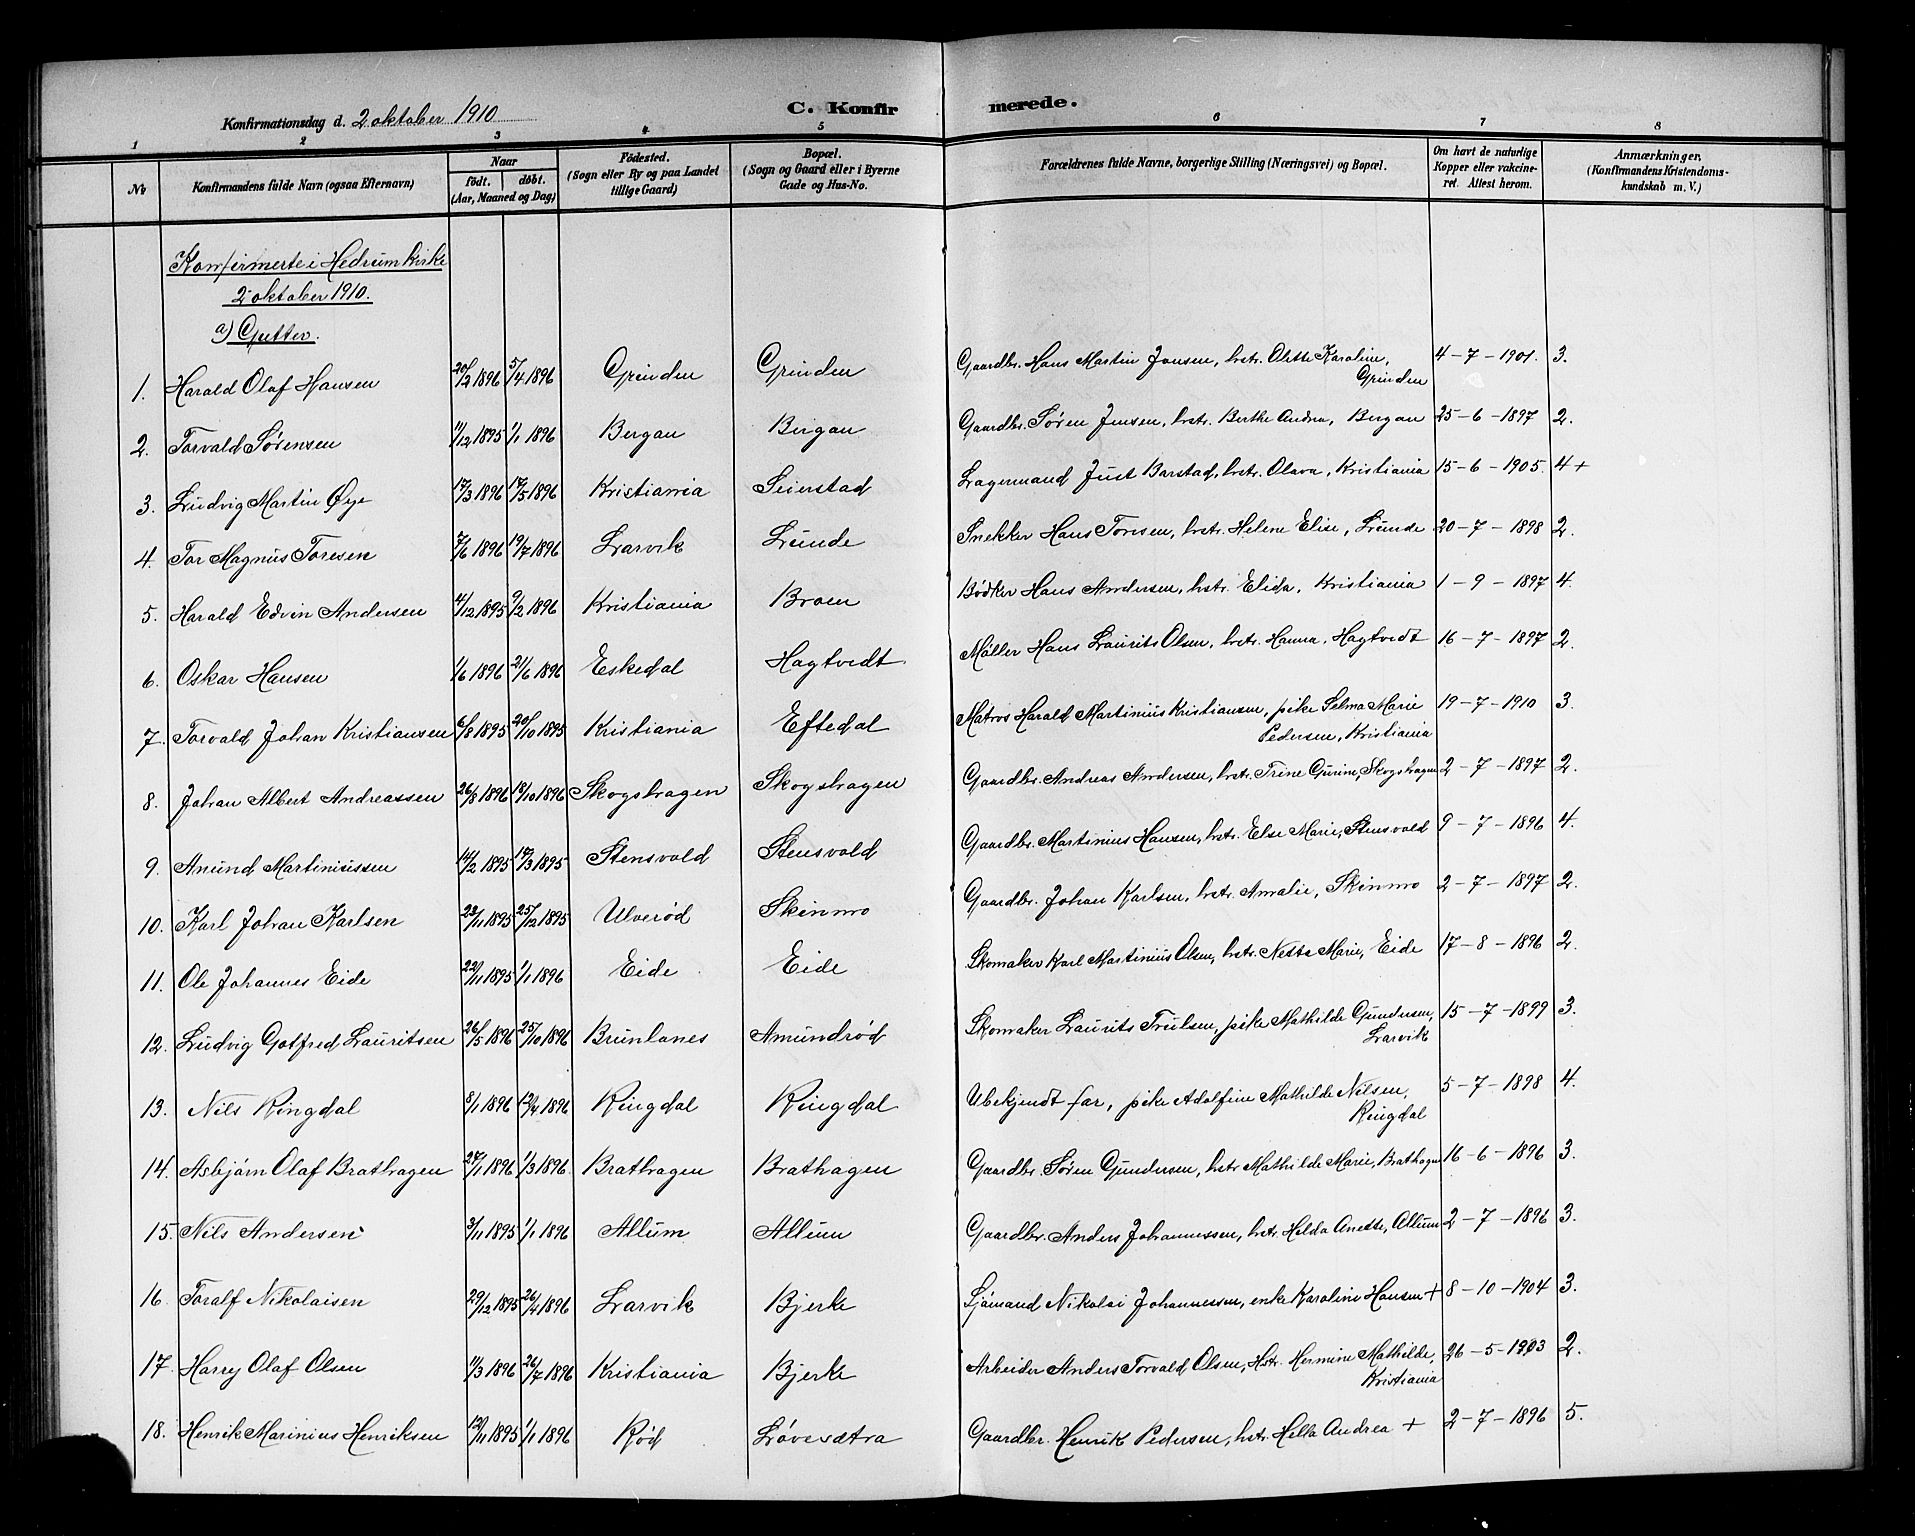 Konfirmationsdag d. 2 oktober 1910
C. Konfirmerede.
1 2 3 4 5 6 7 8
No
Konfirmandens fulde Navn (ogsaa Efternavn)
Naar
født. døbt.
(Aar, Maaned og Dag)
Fødested.
(Sogn eller By og paa Landet
tillige Gaard)
Bopæl.
(Sogn og Gaard eller i Byerne
Gade og Hus-No.
Forældrenes fulde Navne, borgerlige Stilling (Næringsvei) og Bopæl.
Om havt de naturlige
Kopper eller vakcine-
ret. Attest herom.
Anmærkninger.
(Konfirmandens Kristendoms-
kundskab m. V.)
Konfirmerte i Hedrum kirke
2 oktober 1910.
a) Gutter.
1. Harald Olaf Hansen 20/2 1896 5/4 1896 Grinden Grinden Gaardbr. Hans Martin Jensen, hstr. Olette Karoline, Grinden 4-7-1901. 3.
2. Torvald Sørensen 11/12 1895 1/1 1896 Bergan Bergan Gaardbr. Søren Jensen, hstr. Berthe Andrea, Bergan 25-6-1897 2.
3. Ludvig Martin Øye 17/3 1896 17/5 1896 Kristiania Seierstad Lagermand Just Barstad, hstr. Olava, Kristiania 15-6-1905. 4 +
4. Tor Magnus Toresen 7/6 1896 19/7 1896 Larvik Lunde Snekker Hans Toresen, hstr. Helene Elise, Lunde 20-7-1898 2.
5. Harald Edvin Andersen 4/12 1895 9/2 1896 Kristiania Broen Bødker Hans Andersen, hstr. Elida, Kristiania 1-9-1897 4.
6. Oskar Hansen 1/6 1896 21/6 1896 Eskedal Hagtvedt Møller Hans Laurits Olsen, hstr. Hanna, Hagtvedt 16-7-1897 2.
7. Torvald Johan Kristiansen 6/8 1895 20/10 1895 Kristiania Eftedal Matros Harald Martinius Kristiansen, pike Selma Marie
Pedersen, Kristiania 19-7-1910 3.
8. Johan Albert Andreassen 26/8 1896 18/10 1896 Skogshagen Skogshagen Gaardbr. Andreas Andersen, hstr. Trine Gurine, Skogshagen 2-7-1897 2.
9. Amund Martiniussen 14/2 1895 17/3 1895 Stensvold Stensvold Gaardbr. Martinius Hansen, hstr. Else Marie, Stensvold 9-7-1896 4.
10. Karl Johan Karlsen 23/11 1895 25/12 1895 Ulverød Skinmo Gaardbr. Johan Karlsen, hstr. Amalie, Skinmo 2-7-1897 2.
11. Ole Johannes Eide 22/11 1895 1/1 1896 Eide Eide Skomaker Karl Martinius Olsen, hstr. Nette Marie, Eide 17-8-1896 2.
12. Ludvig Gotfred Lauritsen 26/5 1896 25/10 1896 Brunlanes Amundrød Skomaker Laurits Trulsen, pike Mathilde Gundersen,
Larvik 15-7-1899 3.
13. Nils Ringdal 8/1 1896 12/4 1896 Ringdal Ringdal Ubekjendt far, pike Adolfine Mathilde Nilsen,
Ringdal 5-7-1898 4.
14. Asbjørn Olaf Brathagen 27/1 1896 1/3 1896 Brathagen Brathagen Gaardbr. Søren Gundersen, hstr Mathilde Marie, Brathagen 16-6-1896 3.
15. Nils Andersen 3/11 1895 1/1 1896 Allum Allum Gaardbr. Anders Johannessen, hstr. Helda Anette, Allum 2-7-1896 3.
16. Toralf Nikolaisen 29/12 1895 26/4 1896 Larvik Bjerke Sjømand Nikolai Johannessen, enke Karoline Hansen + 8-10-1904 3.
17. Harry Olaf Olsen 11/3 1896 26/7 1896 Kristiania Bjerke Arbeider Anders Torvald Olsen, Hstr. Hermine Mathilde,
Kristiania 26-5-1903 2.
18. Henrik Marinius Henriksen 12/11 1895 1/1 1896 Rød Løvesætra Gaardbr. Henrik Pedersen, hstr. Hella Andrea + 2-7-1896 5.